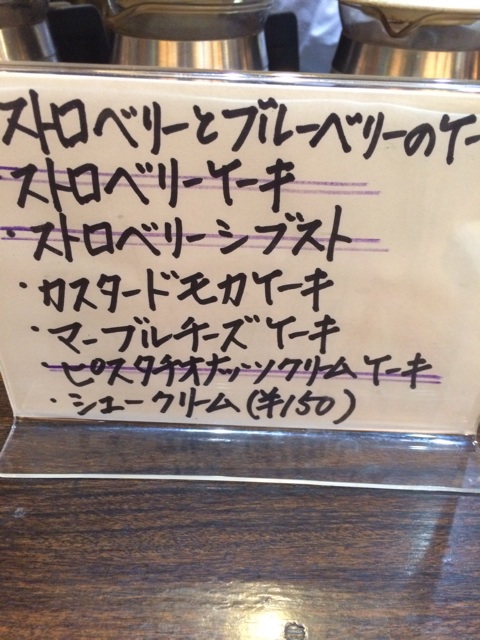 ストロベリーとブルーベリーのケー
・ストロベリーケーキ
・ストロベリーシブスト
・カスタードモカケーキ
・マーブルチーズケーキ
・ピスタチオナッツクリームケーキ
・シュークリーム(¥150)